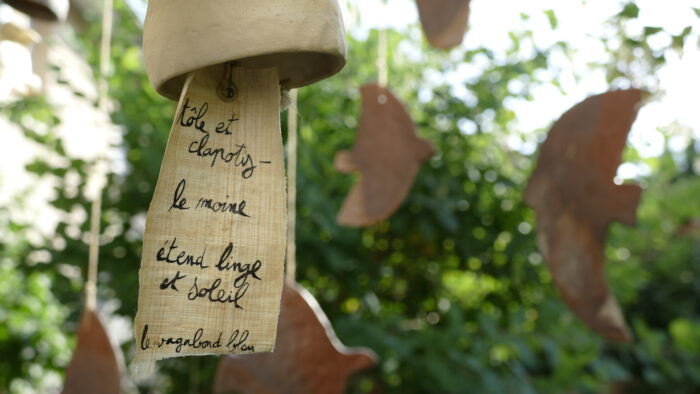 tôle et
clapotis –
le moine
étend linge
et soleil
le vagabond blanc